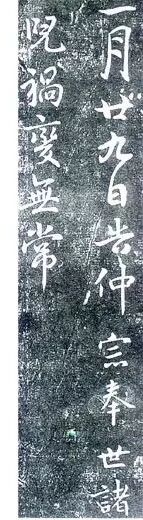 一月廿九日告仲宗奉世諸
兒禍變無常